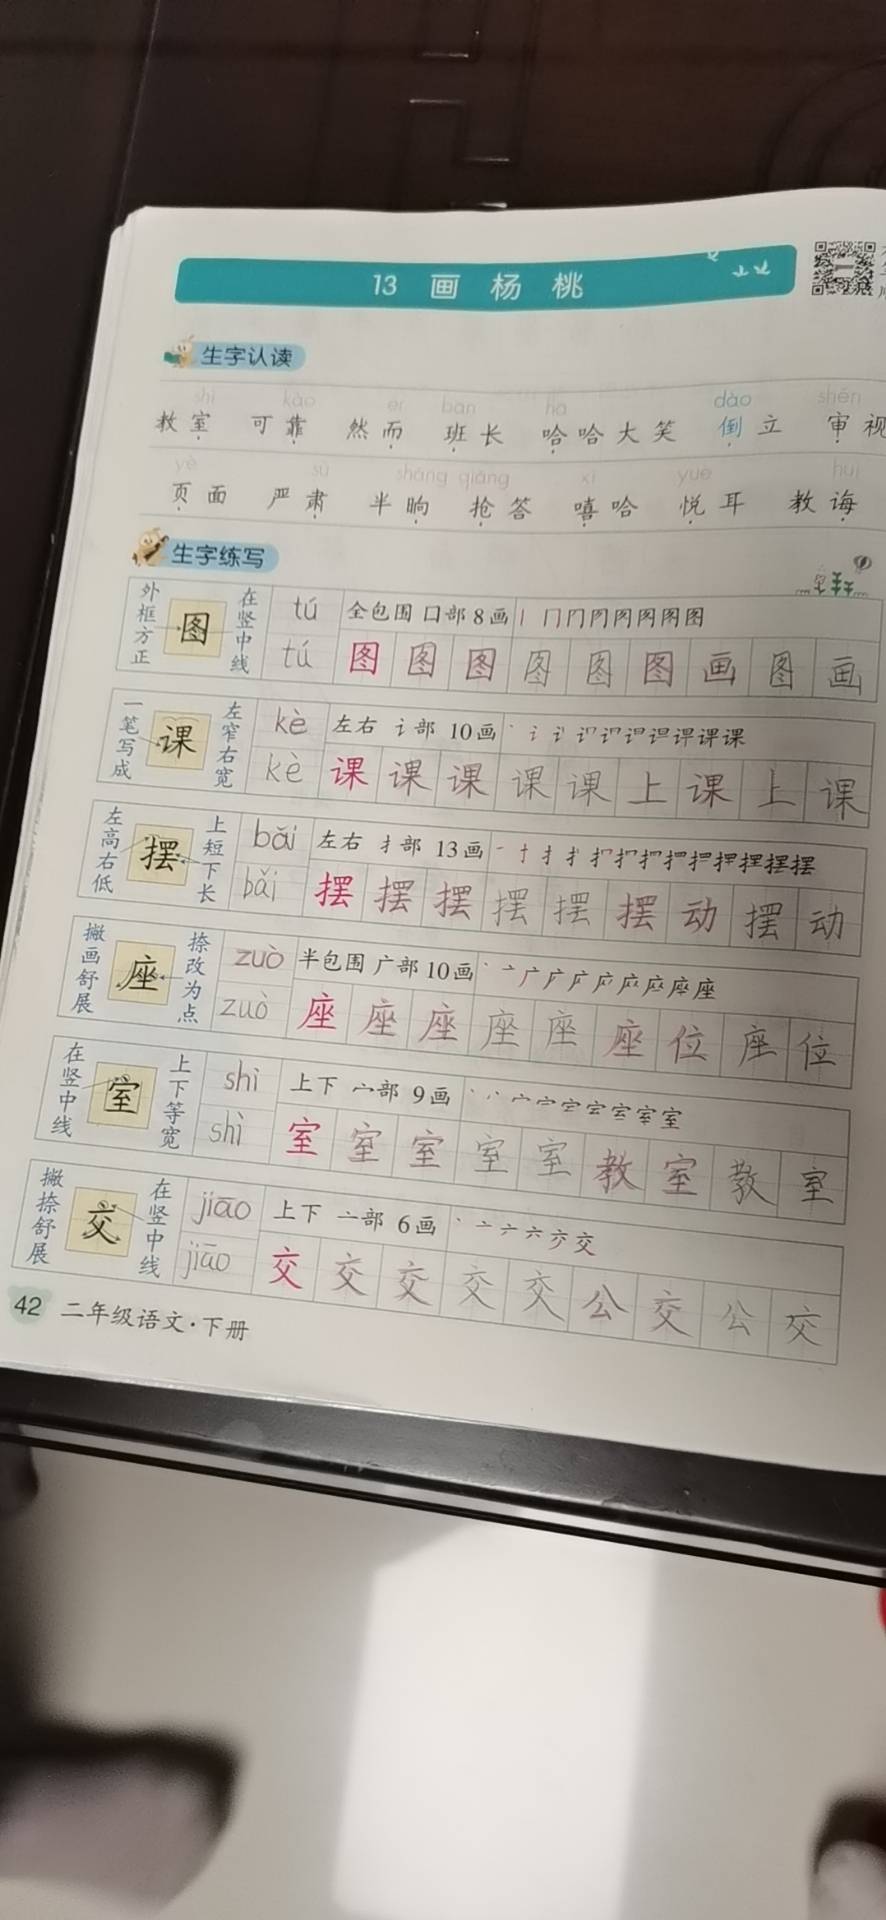 13 画杨桃
生字认读
shì kào ér bān hā dào shěn
教室 可靠 然而 班长 哈哈大笑 倒立 审视
yè sù shǎng qiǎng xī yuè huì
页面 严肃 半晌 抢答 嘻哈 悦耳 教诲
生字练写
外框方正 图 在竖中线 tú 全包围 囗部 8画
tú 图 图 图 图 图 图 画 图 画
一笔写成 课 左窄右宽 kè 左右 讠部 10画
kè 课 课 课 课 课 上 课 上 课
左高右低 摆 上短下长 bǎi 左右 扌部 13画
bǎi 摆 摆 摆 摆 摆 摆 动 摆 动
撇画舒展 座 捺改为点 zuò 半包围 广部 10画
zuò 座 座 座 座 座 座 位 座 位
在竖中线 室 上下等宽 shì 上下 宀部 9画
shì 室 室 室 室 室 教 室 教 室
撇捺舒展 交 在竖中线 jiāo 上下 亠部 6画
jiāo 交 交 交 交 交 公 交 公 交
42 二年级语文·下册